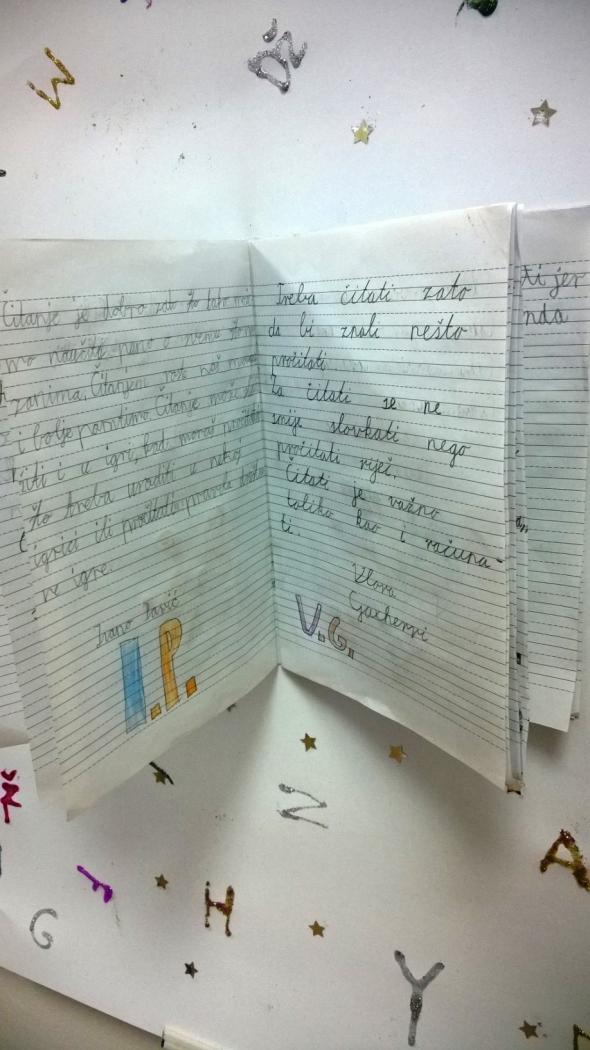 W
DŽ
Čitanje je dobro zato što tako može
mo naučiti puno o svemu što nas
zanima. Čitanjem
i bolje pamtimo. Čitanje može
i u igri, kad moraš pročitati
što treba uraditi u nekoj
igrici ili pročitati pravila
ne igre.
Ivano Pavić
I.P.
Treba čitati zato
da bi znali nešto
pročitati.
Za čitati se ne
smije slovkati nego
pročitati riječ.
Čitati je važno
toliko kao i računa-
ti.
V.G.
ti jer
nda
Ž
N
A
H
G
Y